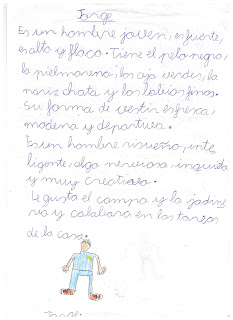 Jorge
Es un hombre joven, es fuerte,
es alto y flaco. Tiene el pelo negro,
la piel morena, los ojo verdes, la
naris chata y los labios finos.
Su forma de vestir es fresca,
modena y deportiva.
Es un hombre risueño, inte
ligente, algo nervioso, inquieto
y muy creativo.
Le gusta el campo y la jadine
ría y colabora en las tareas
de la casa.
Jorge.